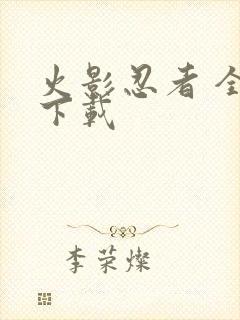 火影忍者 全
下载
李荣灿